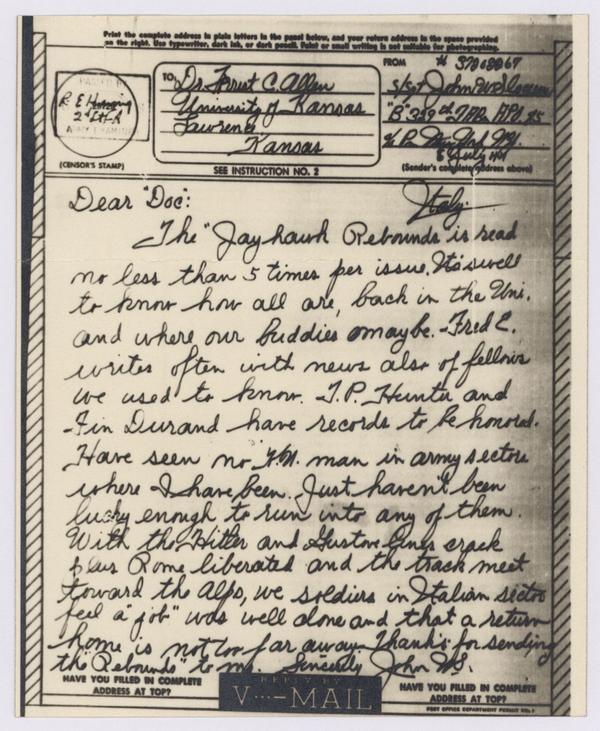 Print the complete address in plain letters in the panel below, and your return address in the space provided
on the right. Use typewriter, dark ink, or dark pencil. Faint or small writing is not suitable for photographing.
PASSED BY
R. E.
ARMY EXAMINER
(CENSOR'S STAMP)
TO:
Dr. Forrest C. Allen
University of Kansas
Lawrence
Kansas
SEE INSTRUCTION NO. 2
FROM
S/Sgt John W.
(Sender's complete address above)
Dear "Doc":
Italy.
The "Jayhawk Rebounds" is read
no less than 5 times per issue. It's swell
to know how all are, back in the Uni.
and where our buddies maybe. Fred E.
writes often with news also of fellows
we used to know. T.P. Hunter and
Fin Durand have records to be honored.
Have seen no K.U. man in army sectors
where I have been. Just haven't been
lucky enough to run into any of them.
With the Hitler and Gustove lines crack
plus Rome liberated and the track meet
toward the Alps, we soldiers in Italian sector
feel a "job" was well done and that a return
home is not too far away. Thanks for sending
the Rebounds" to me. Sincerly John W.S.
HAVE YOU FILLED IN COMPLETE
ADDRESS AT TOP?
REPLY BY
V···—MAIL
HAVE YOU FILLED IN COMPLETE
ADDRESS AT TOP?
POST OFFICE DEPARTMENT PERMIT NO.